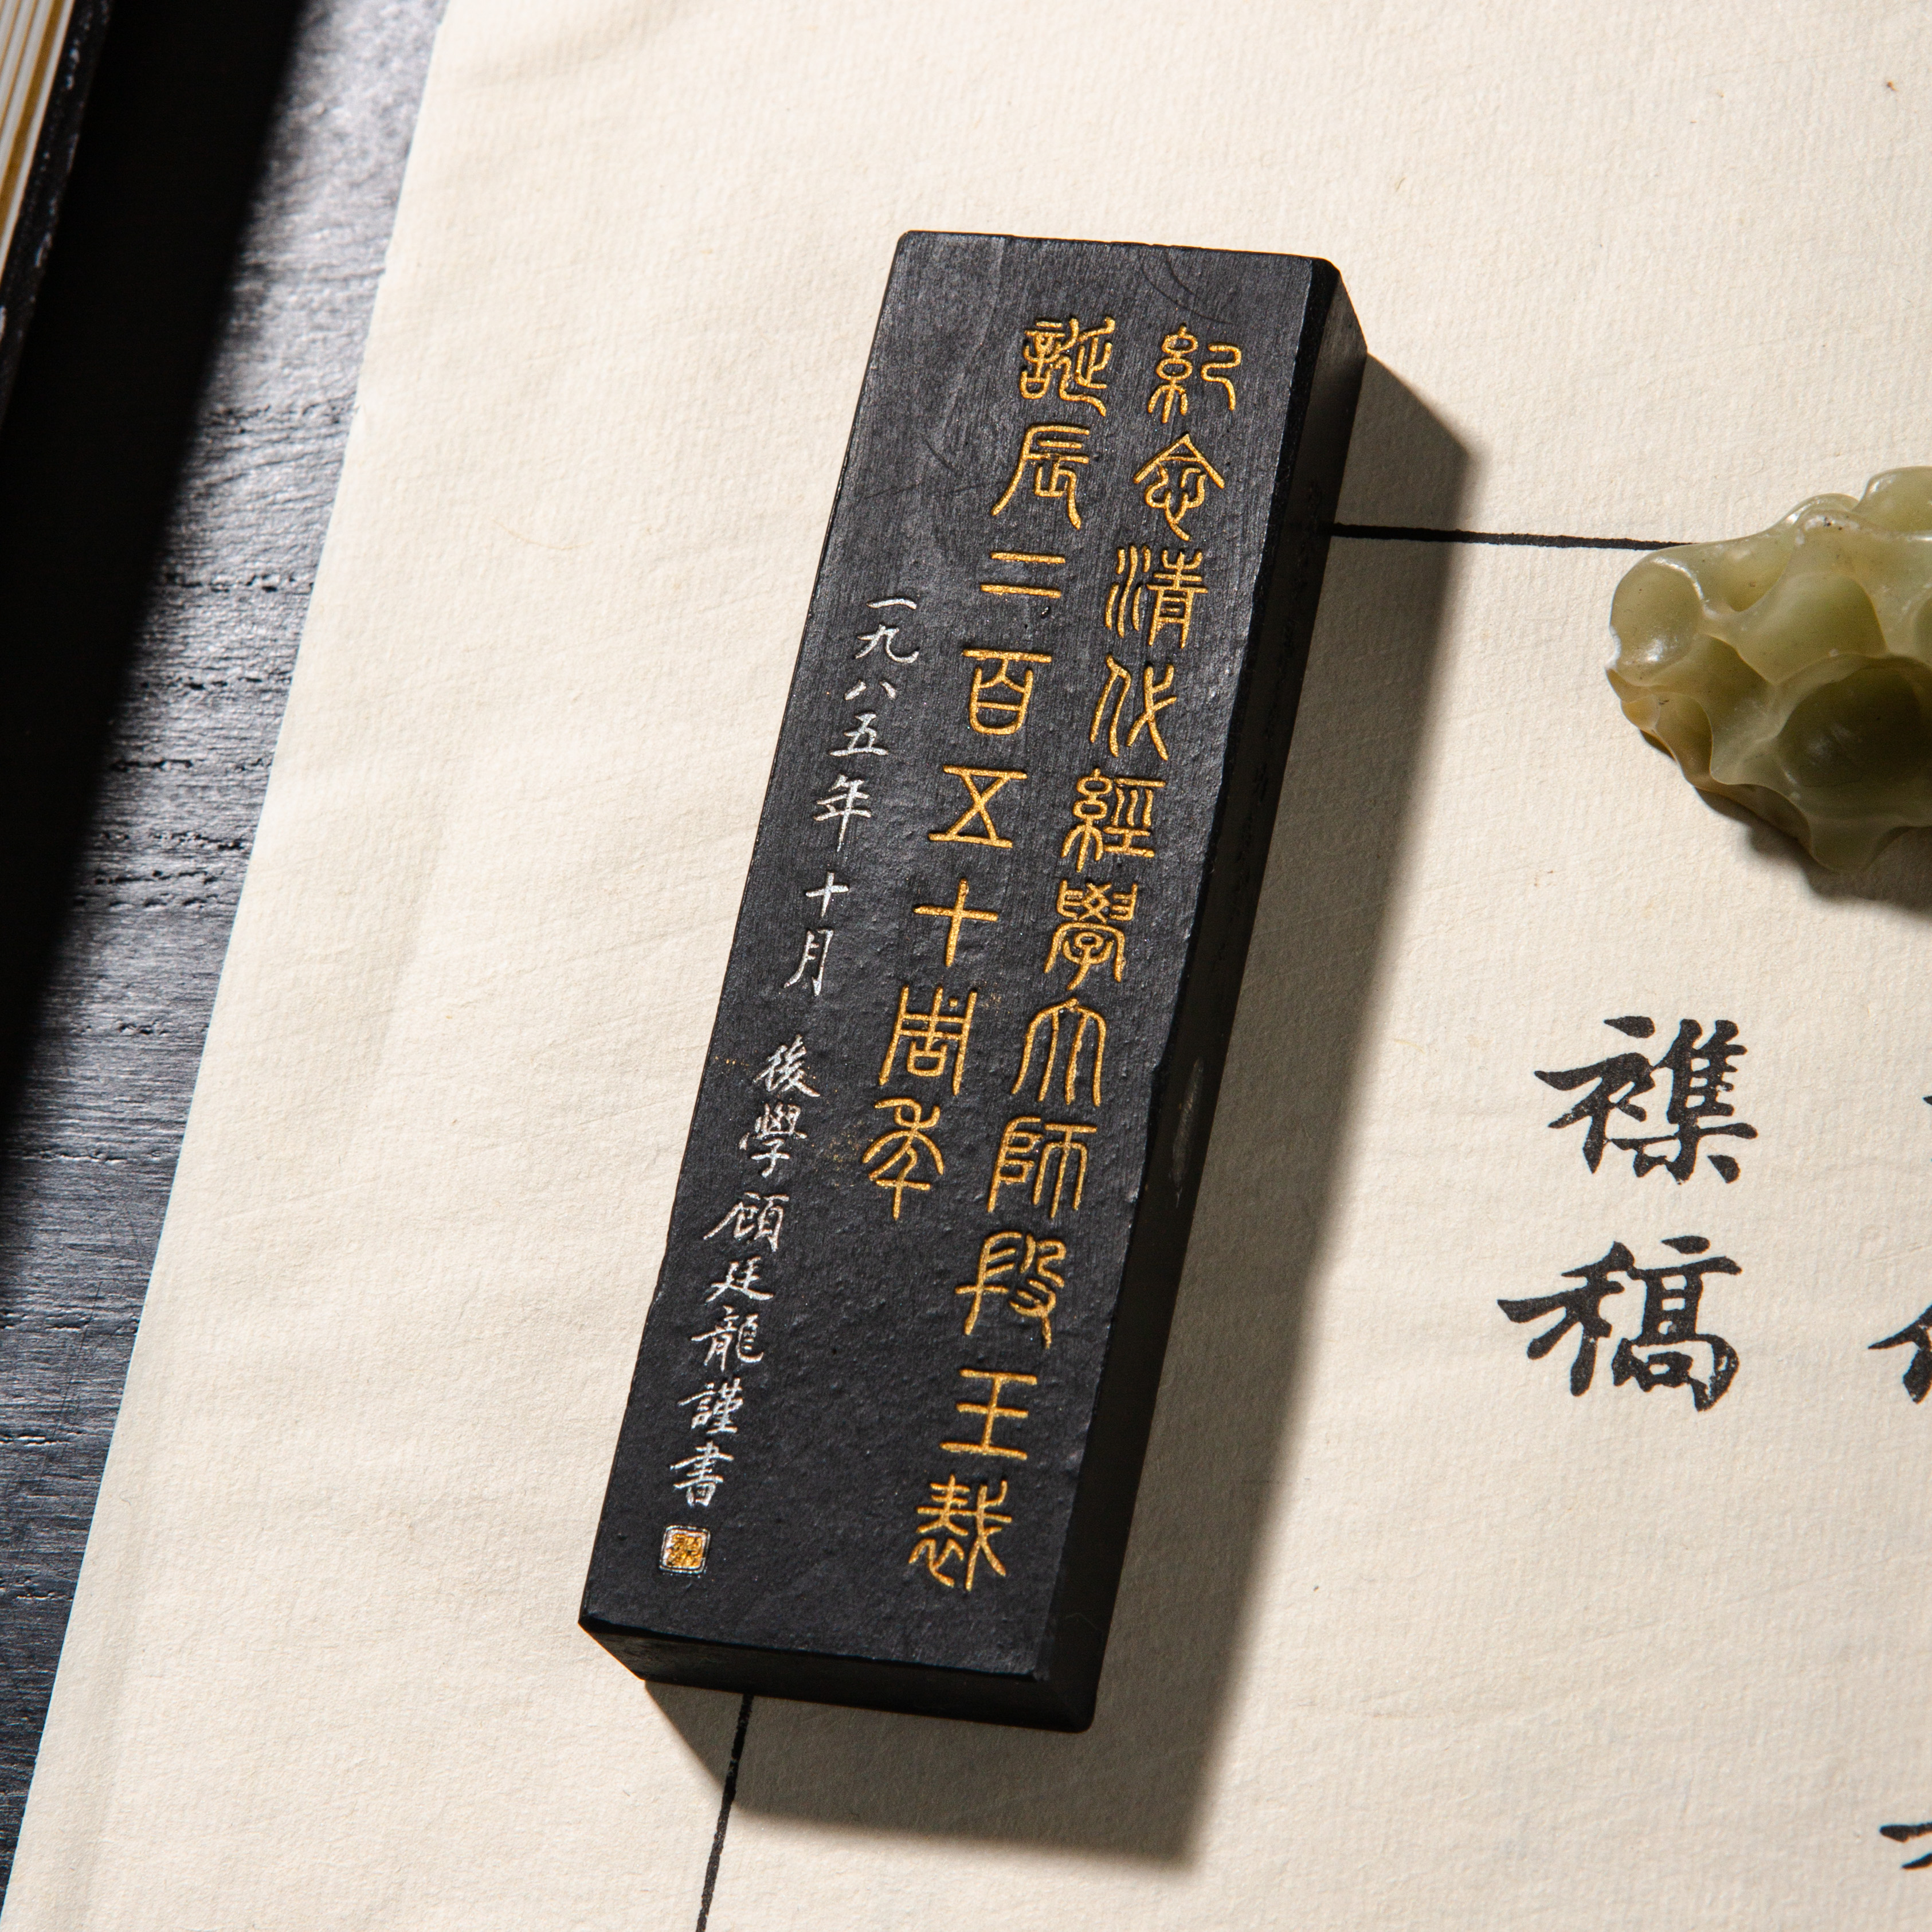 紀念清代經學大師段玉裁
誕辰二百五十周年
一九八五年十月 後學顧廷龍謹書
襍稿